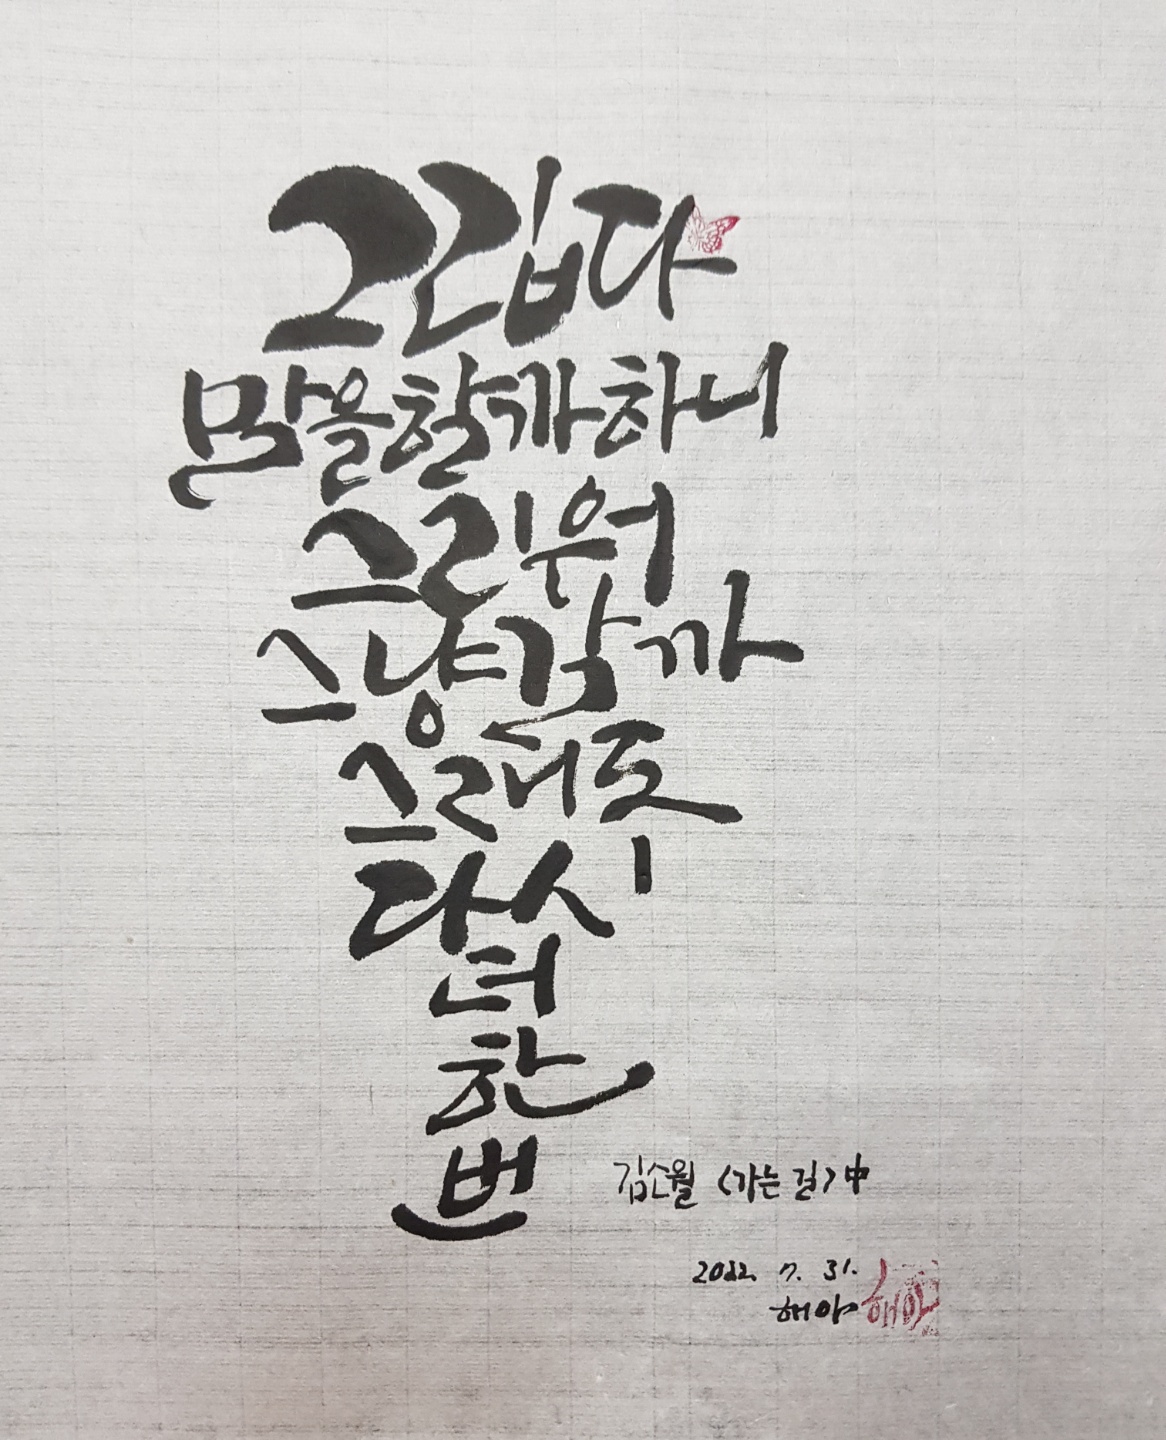 그립다
말을할까하니
그리워
그냥갈까
그래도
다시
더
한
번
김소월 <가는 길> 中
2022. 7. 31.
해야 해야